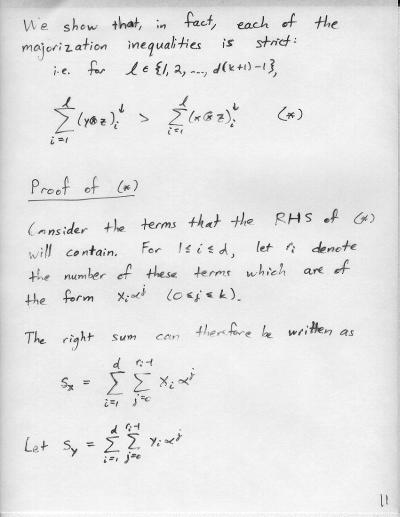 We show that, in fact, each of the
majorization inequalities is strict:
i.e. for l ∈ {1, 2, ..., d(k+1)-1},
∑_{i=1}^{l} (y⊗z)_i^↓ > ∑_{i=1}^{l} (x⊗z)_i^↓ (*)
Proof of (*)
Consider the terms that the RHS of (*)
will contain. For 1≤i≤d, let r_i denote
the number of these terms which are of
the form x_i α^j (0≤j≤k).
The right sum can therefore be written as
S_x = ∑_{i=1}^{d} ∑_{j=0}^{r_i-1} x_i α^j
Let S_y = ∑_{i=1}^{d} ∑_{j=0}^{r_i-1} y_i α^j
11